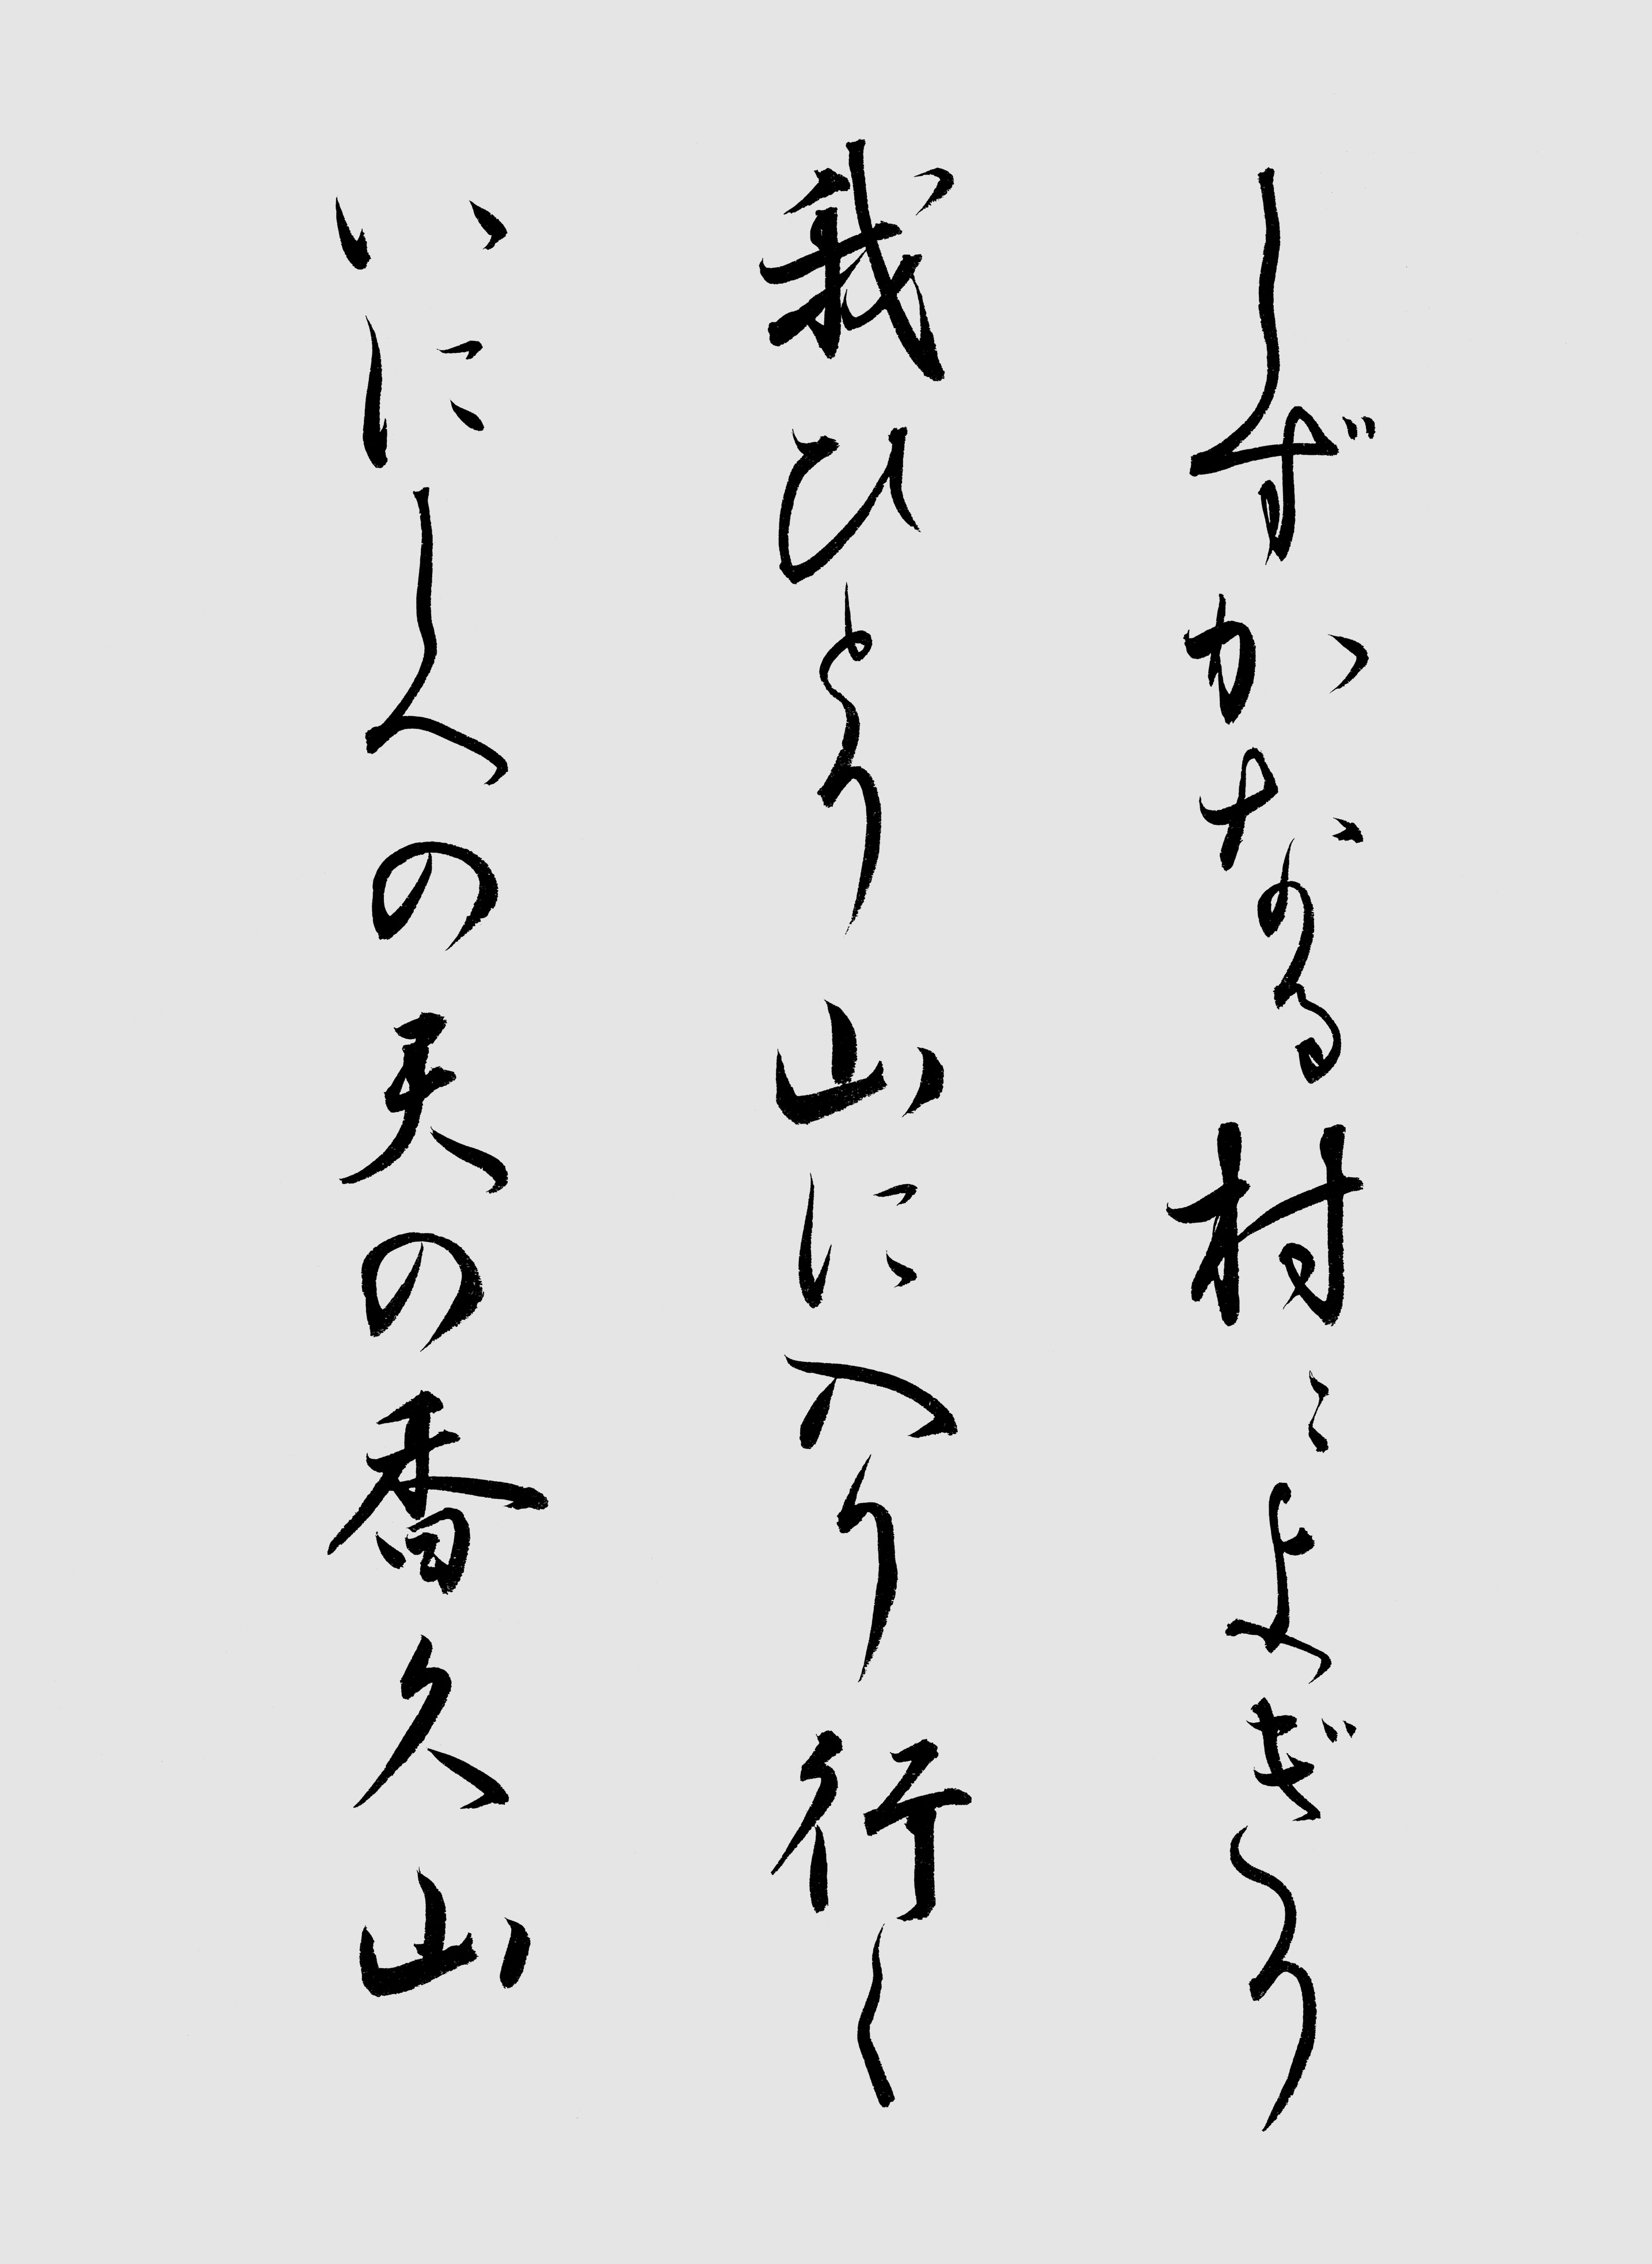 しずかなる村々よぎり
我ひとり山に入り行く
いにしへの天の香久山